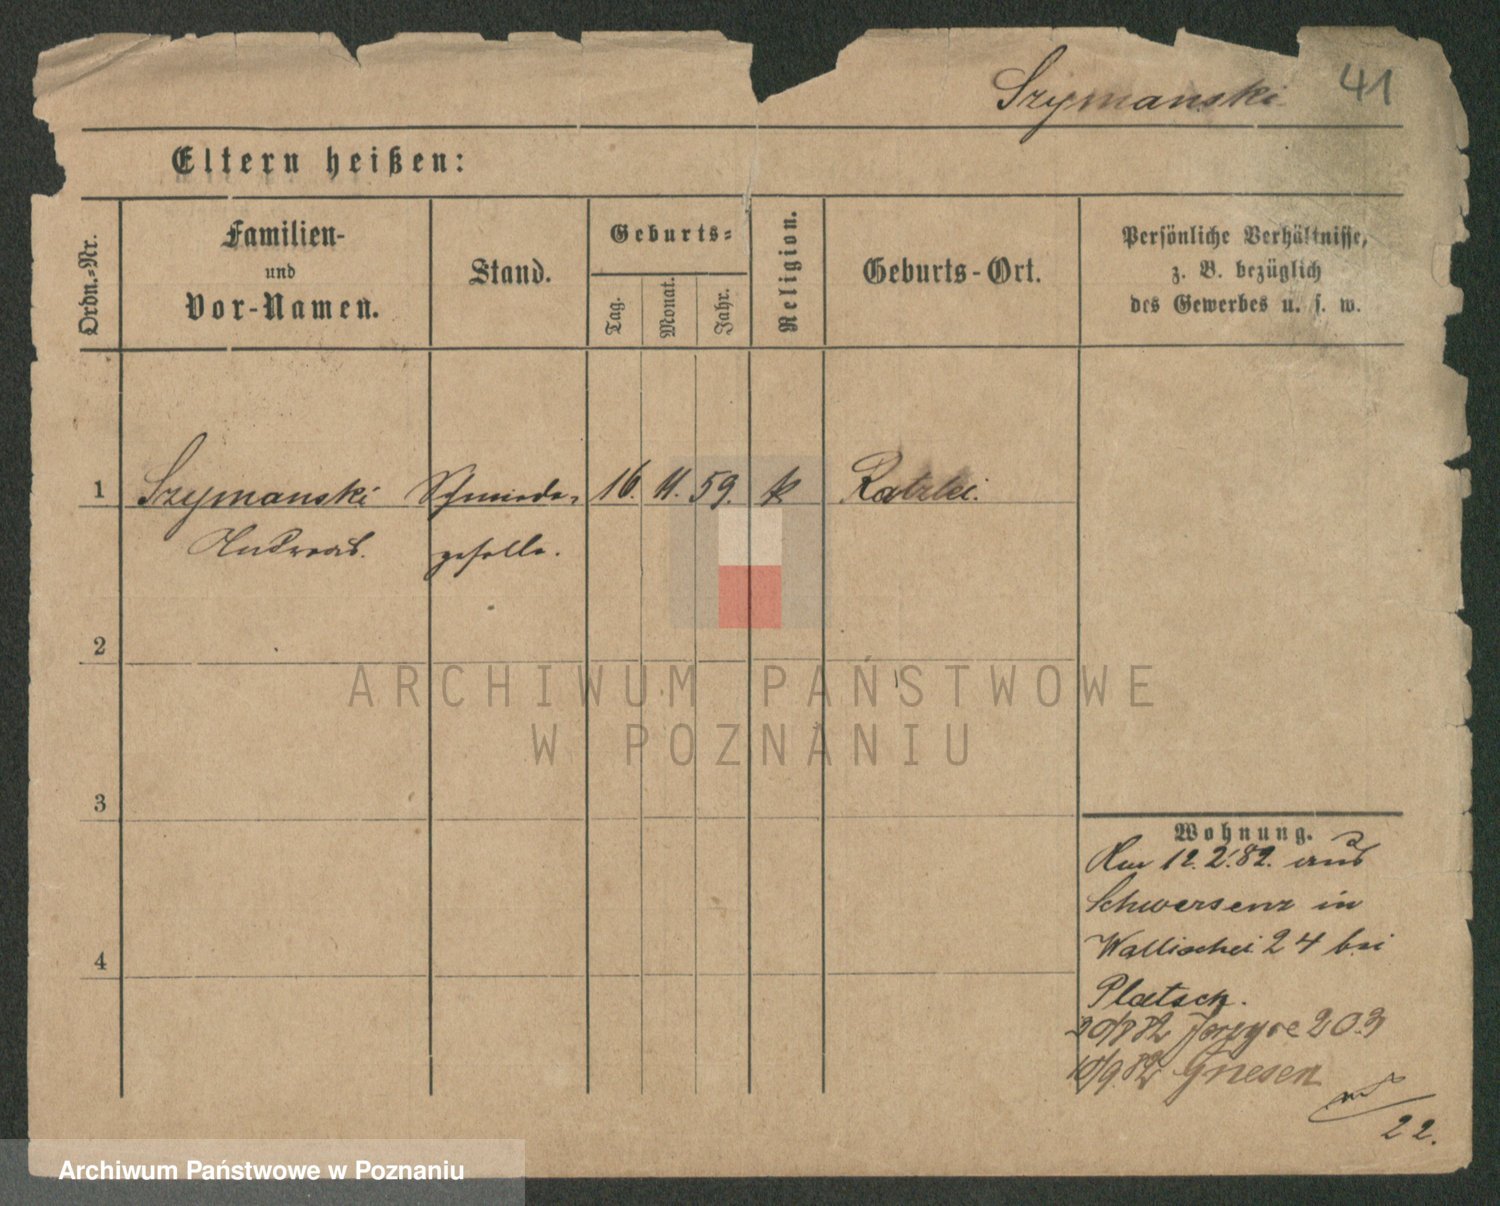 Szymanski 41
Eltern heißen:
Ordn.-Nr.
Familien-
und
Vor-Namen.
Stand.
Geburts-
Tag.
Monat.
Jahr.
Religion.
Geburts-Ort.
Persönliche Verhältnisse,
z. B. bezüglich
des Gewerbes u. s. w.
1 Szymanski Schmiede- 16. 11. 59. k
Andreas. geselle.
2
3
4
Wohnung.
Am 12.2.82. aus
Schwersenz in
Wallischei 24 bei
20/8 82 203
Gnesen
22.
ARCHIWUM PAŃSTWOWE
W POZNANIU
Archiwum Państwowe w Poznaniu